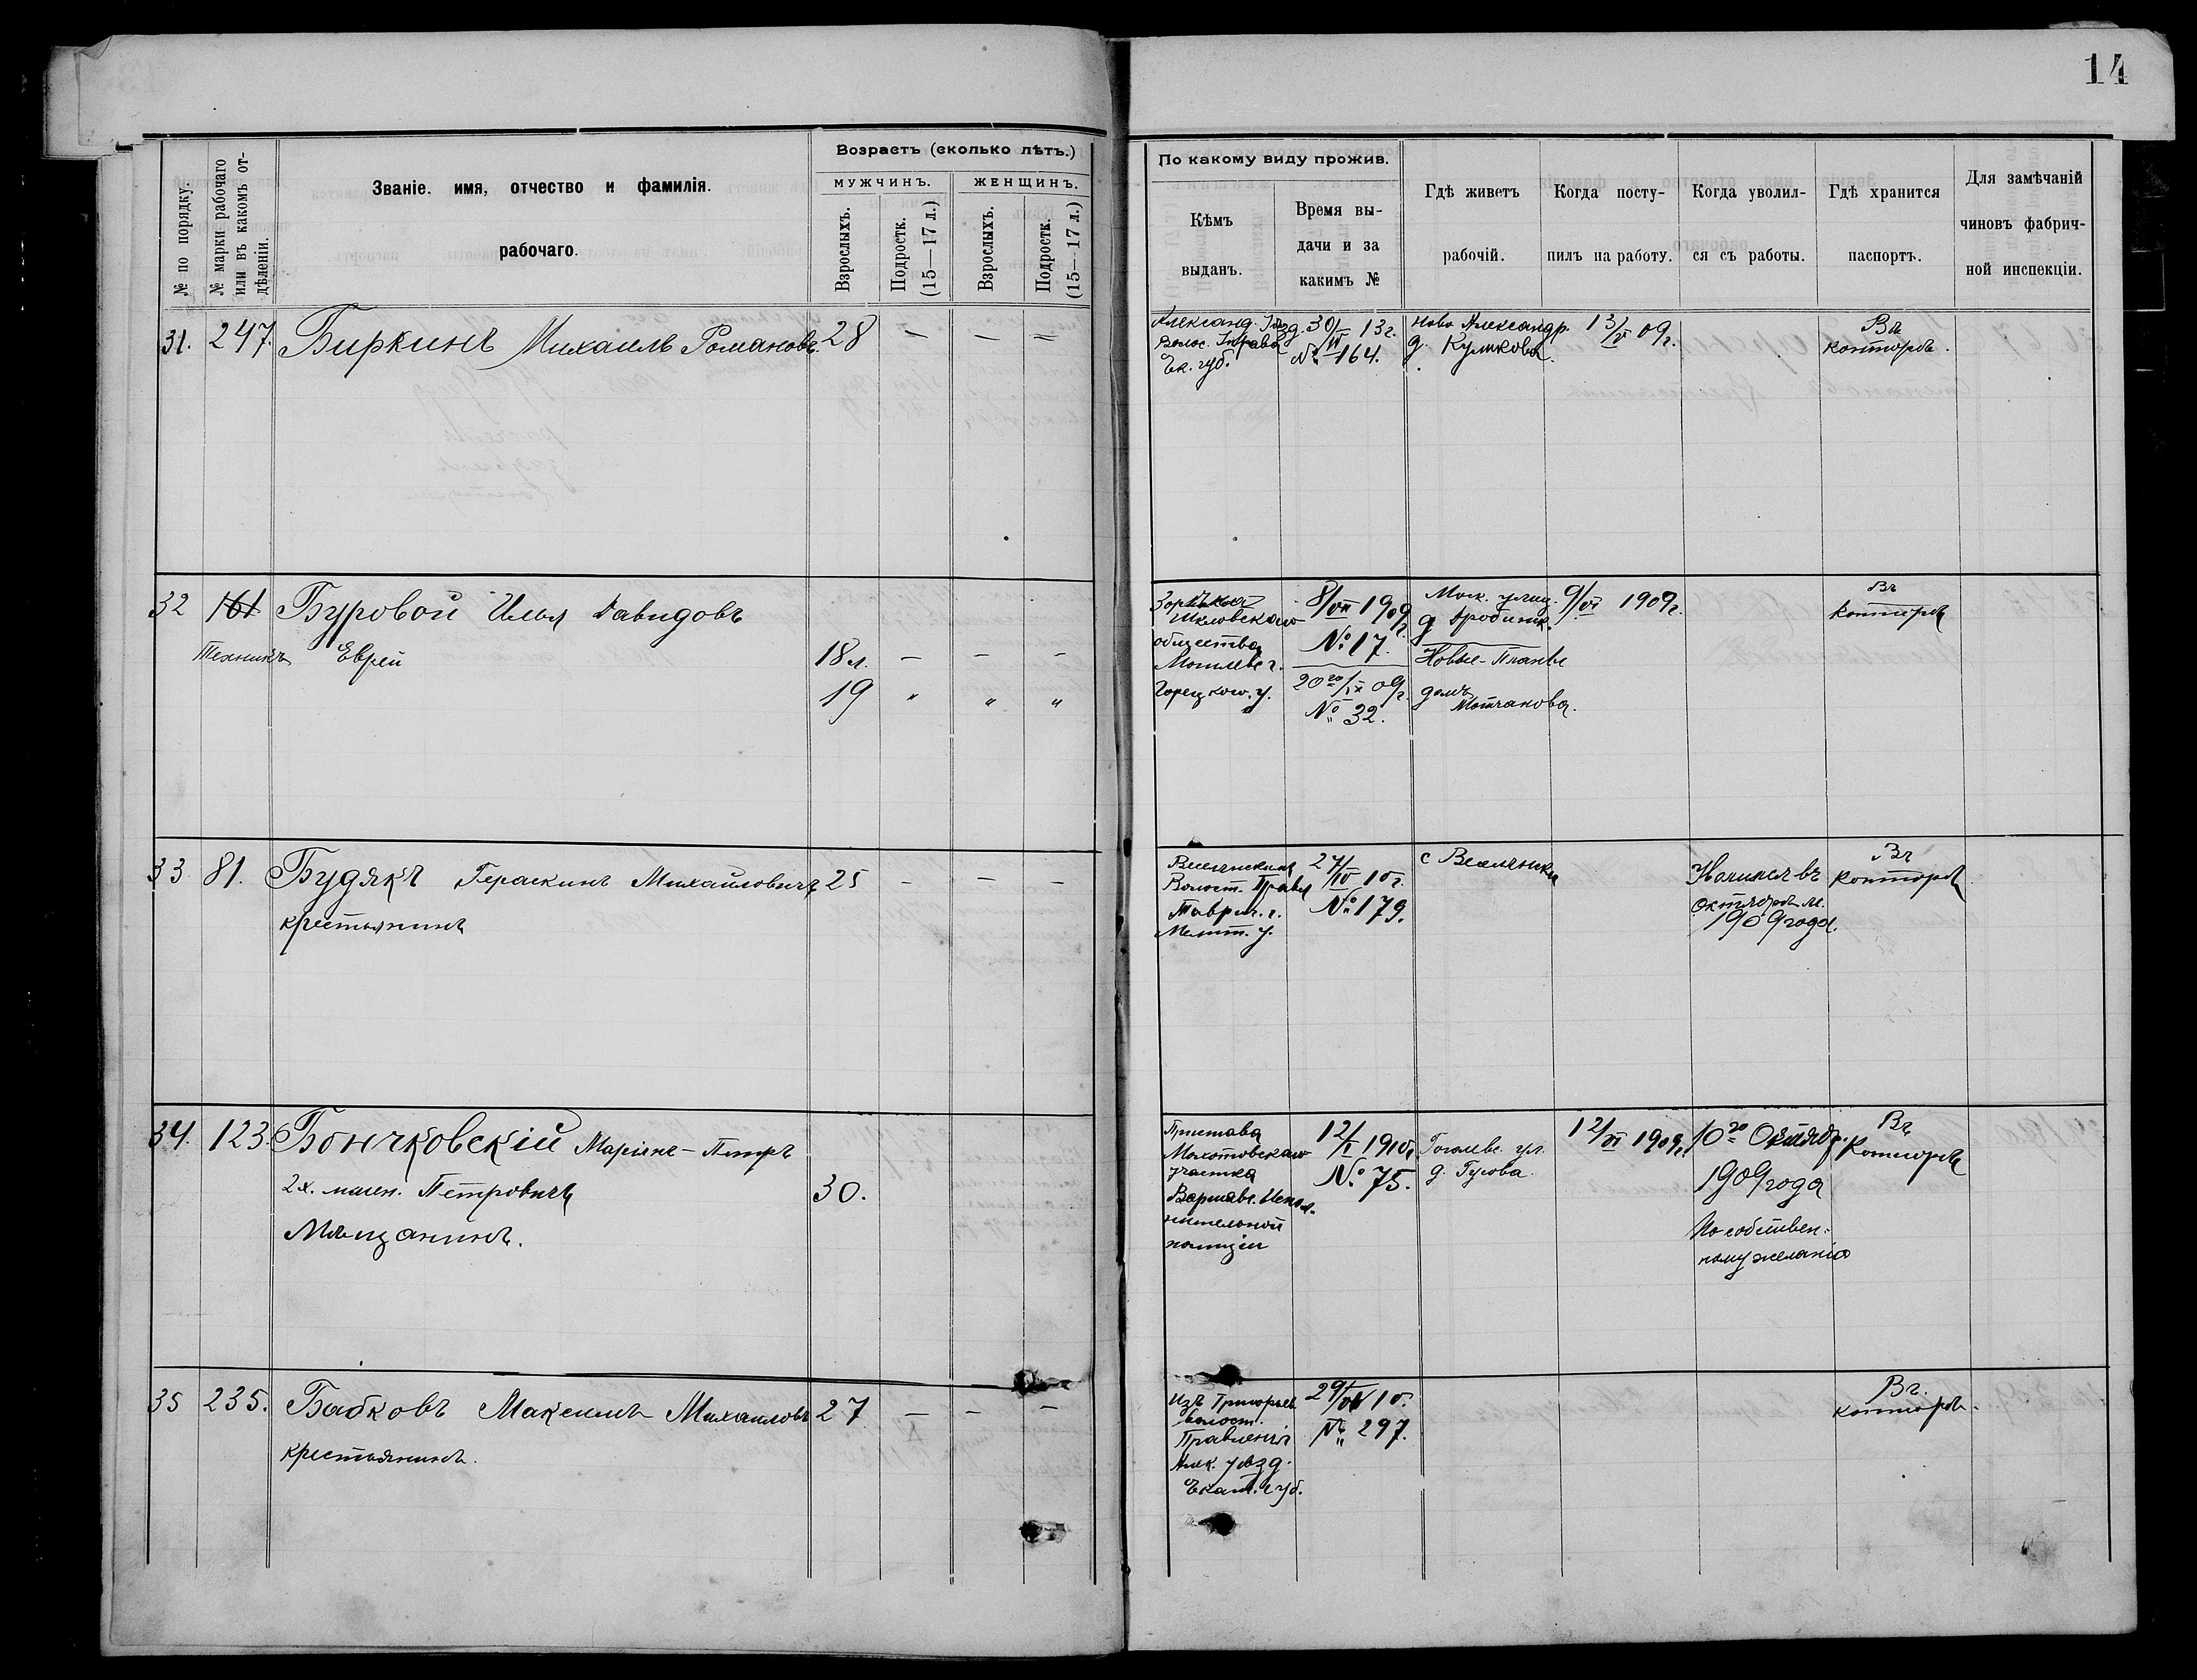 14
№ по порядку.
№ марки рабочаго или въ какомъ отдѣленіи.
Званіе. имя, отчество и фамилія.
рабочаго.
Возрастъ (сколько лѣтъ.)
МУЖЧИНЪ.
ЖЕНЩИНЪ.
Взрослыхъ.
Подростк. (15—17 л.)
Взрослыхъ.
Подростк. (15—17 л.)
По какому виду прожив.
Кѣмъ
выданъ.
Время вы-
дачи и за
какимъ №
Гдѣ живетъ
рабочій.
Когда посту-
пилъ на работу.
Когда уволил-
ся съ работы.
Гдѣ хранится
паспортъ.
Для замѣчаній
чиновъ фабрич-
ной инспекціи.
31. 247. Биркинъ Михаилъ Романовъ. 28 — — =
Александ.
Волос. Управа
Ек. губ.
30/IV 13 г.
№ 164.
Ново Александр.
д. Куликова.
13/V 09 г.
Въ
конторѣ.
32 161 Буровой Илья Давидовъ
Техникъ Еврей 18 л. — — —
19 " " "
Шкловскаго
общества
Могилевс г.
Горецкого. у.
8/VII 1909 г.
№ 17.
20го/IX 09 г.
№ 32.
Моск. улиц.
д Дробинк.
Новые-Планы
домъ
Молчанова.
9/VI 1909 г.
Въ
конторѣ
33 81. Будякъ Гераскинъ Михайловичъ 25 — — —
крестьянинъ
Веселянская
Волост. Правл
Таврич. г.
Мелит. у.
27/IV 10 г.
№ 179.
с Веселянка
Уволился въ
Октябрѣ м.
1909 года.
Въ
конторѣ
34. 123. Бончковскій Маріянъ-Петръ
2х. имен. Петровичъ 30.
Мѣщанинъ.
Пристава
Мокотовскаго
участка
Варшавс. Испол-
нительной
полиціи
12/I 1910 г.
№ 75.
Гоголевс. ул.
д. Гусова.
12/VI 1909 г.
10го Октябр.
1909 года
По собствен-
ному желанію
Въ
Конторѣ
35 235. Бабковъ Максимъ Михаиловъ 27 — — —
крестьянинъ.
Изъ Григорьев.
волост.
Правленія
Алек. уѣзд.
Екат. губ.
29/VI 10 г.
№ 297.
Въ.
конторѣ.